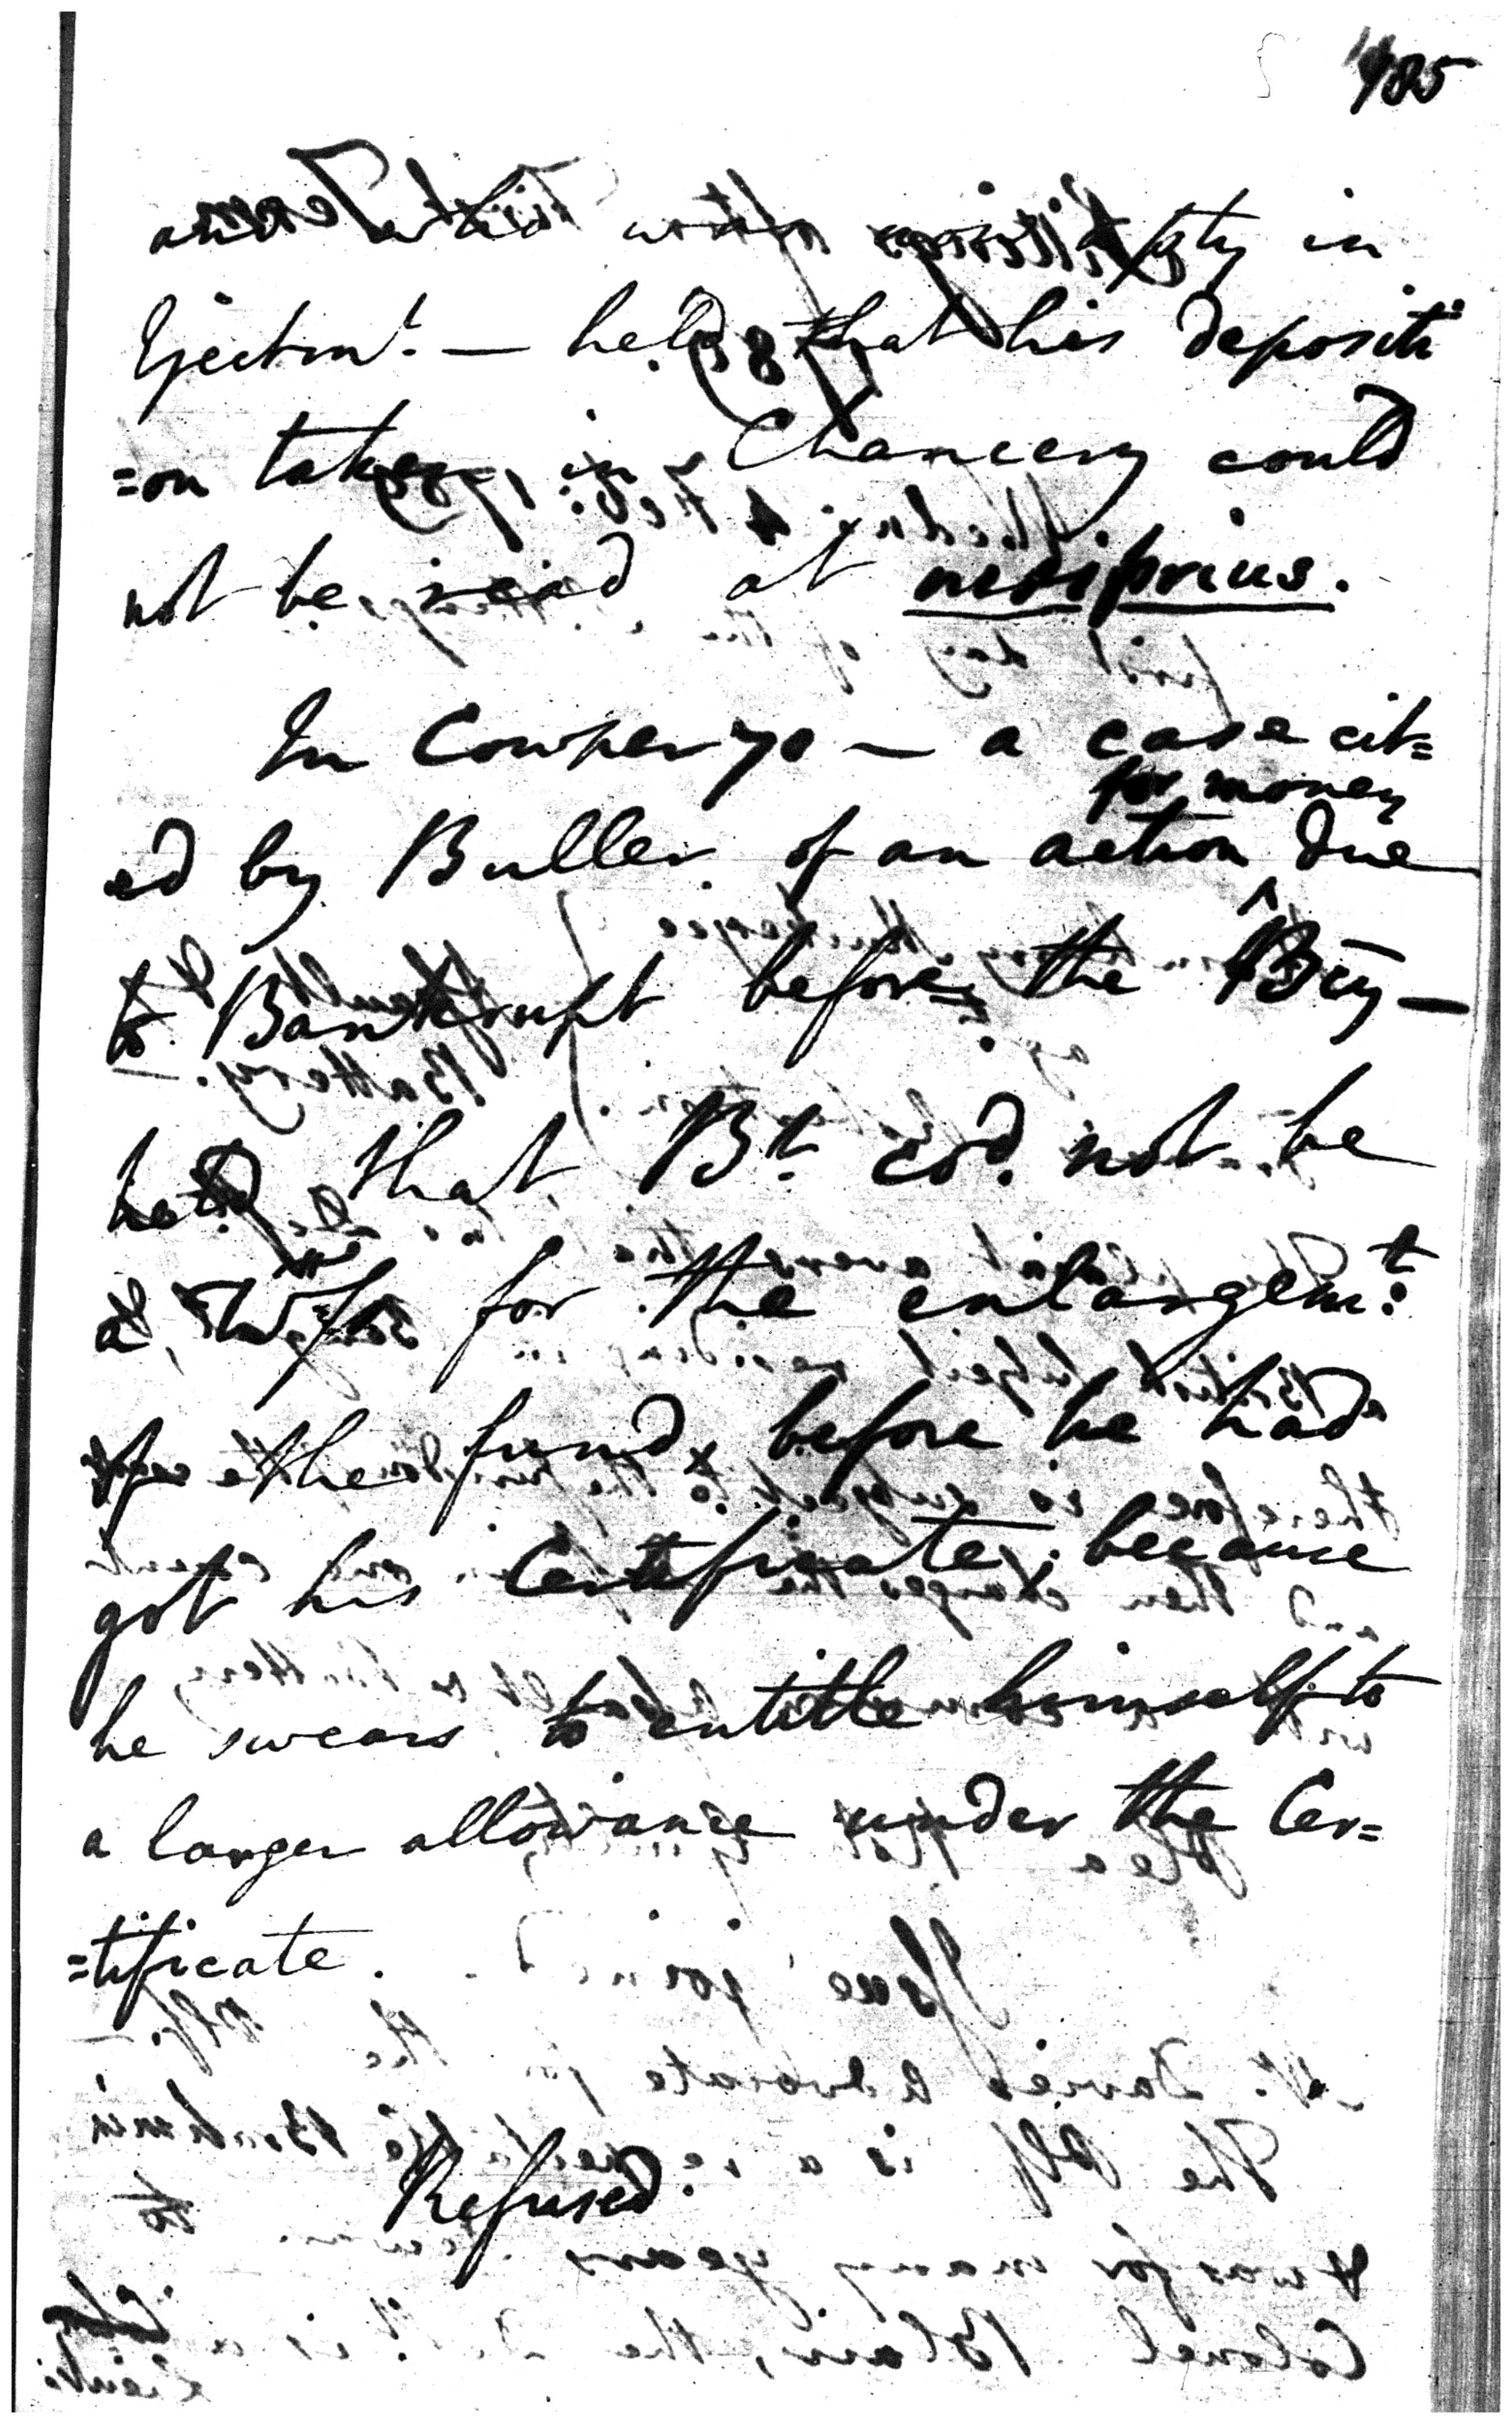 185
and who was a pty in
Ejectmt. — held that his depositi
=on taken in Chancery could
not be read at nisi prius.
In Cowper 70 — a case cit=
for money
ed by Buller of an action due
to Bankrupt before the Bcy —
held that Bt. cod. not be
a Witss for the enlargemt.
of the fund, before he had
got his Certificate; because
he swears to entitle himself to
a larger allowance under the Cer=
=tificate.
Refused.